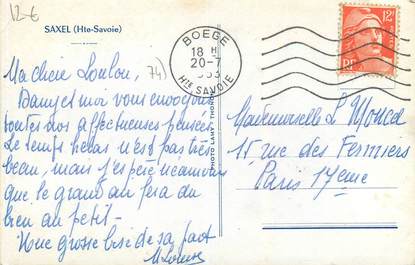 12-6
SAXEL (Hte-Savoie)
74)
Ma chère Loulou,
Dany et moi vous envoyons
toutes nos affectueuses pensées.
Le temps hélas n'est pas très
beau, mais j'espère néanmoins
que le grand air fera du
bien au petit -
Une grosse bise de sa part
M Louise
PHOTO LAMY - THONON
BOEGE
18 H
20-7
1953
HTE SAVOIE
12F
RF
Mademoiselle L Moucel
15 rue des Fermiers
Paris 17ème